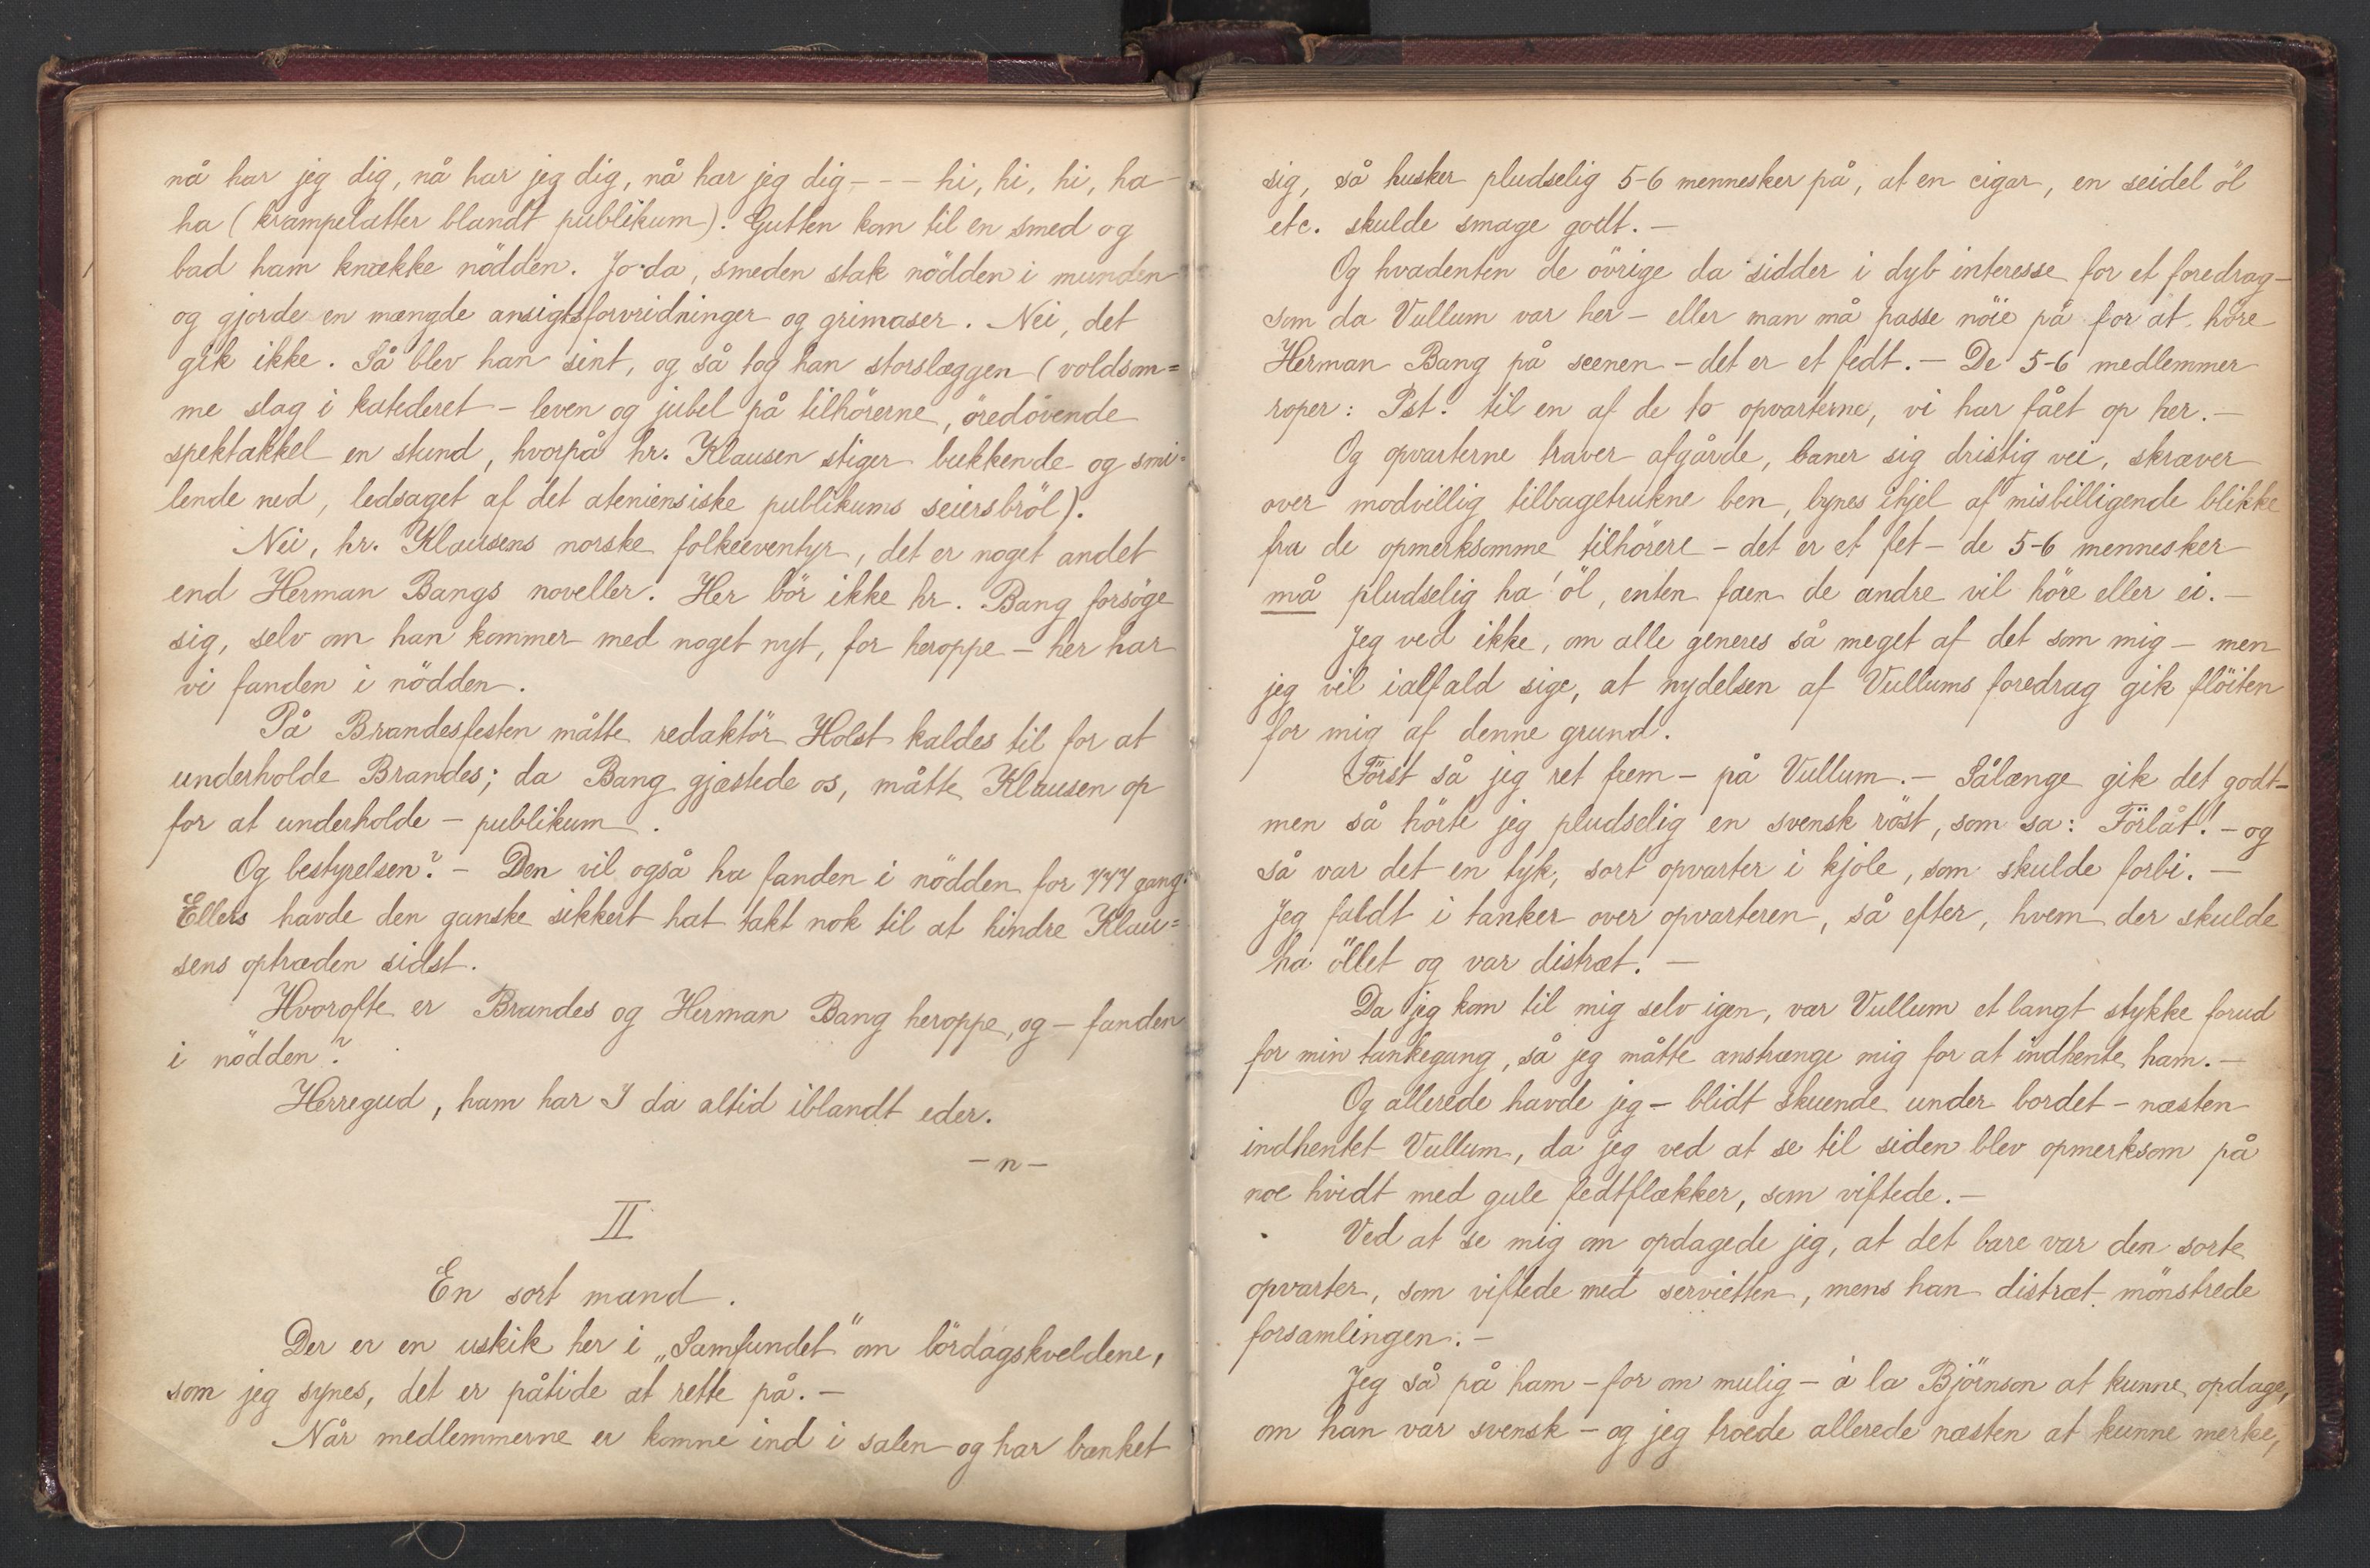 nå har jeg dig, nå har jeg dig, nå har jeg dig - - - hi, hi, hi, ha -
ha (krampelatter blandt publikum). Gutten kom til en smed og
bad ham knække nödden. Jo da, smeden stak nödden i munden
og gjorde en mængde ansigtsforvridninger og grimaser. Nei, det
gik ikke. Så blev han sint, og så tog han storslæggen (voldsom=
me slag i katederet - leven og jubel på tilhörerne, öredövende
spektakkel en stund, hvorpå hr. Klausen stiger bukkende og smi-
lende ned, ledsaget af det ateniensiske publikums seiersbröl).
Nei, hr. Klausens norske folkeeventyr, det er noget andet
end Herman Bangs noveller. Her bör ikke hr. Bang forsöge
sig, selv om han kommer med noget nyt, for heroppe - her har
vi fanden i nödden.
På Brandesfesten måtte redaktör Holst kaldes til for at
underholde Brandes; da Bang gjæstede os, måtte Klausen op
for at underholde - publikum.
Og bestyrelsen? - Den vil også ha fanden i nödden for 777 gang.
Ellers havde den ganske sikkert hat takt nok til at hindre Klau=
sens optræden sidst.
Hvorofte er Brandes og Herman Bang heroppe, og - fanden
i nödden?
Herregud, ham har I da altid iblandt eder.
- n -
II
En sort mand.
Der er en uskik her i „Samfundet" om lördagskveldene,
som jeg synes, det er påtide at rette på. -
Når medlemmerne er komne ind i salen og har bænket
sig, så husker pludselig 5-6 mennesker på, at en cigar, en seidel öl
etc. skulde smage godt. -
Og hvadenten de övrige da sidder i dyb interesse for et foredrag -
som da Vullum var her - eller man må passe nöie på for at höre
Herman Bang på scenen - det er et fedt. - De 5-6 medlemmer
roper: Pst! til en af de to opvarterne, vi har fået op her. -
Og opvarterne traver afgårde, baner sig dristig vei, skræver
over modvillig tilbagetrukne ben, bynes ihjel af misbilligende blikke
fra de opmerksomme tilhörere - det er et fet - de 5-6 mennesker
må pludselig ha' öl, enten faen de andre vil höre eller ei. -
Jeg ved ikke, om alle generes så meget af det som mig - men
jeg vil ialfald sige, at nydelsen af Vullums foredrag gik flöiten
for mig af denne grund.
Först så jeg ret frem - på Vullum. - Sålænge gik det godt -
men så hörte jeg pludselig en svensk röst, som sa: Förlåt! - og
så var det en tyk, sort opvarter i kjole, som skulde forbi. -
Jeg faldt i tanker over opvarteren, så efter, hvem der skulde
ha öllet og var distræt. -
Da jeg kom til mig selv igen, var Vullum et langt stykke forud
for min tankegang, så jeg måtte anstrænge mig for at indhente ham. -
Og allerede havde jeg - blidt skuende under bordet - næsten
indhentet Vullum, da jeg ved at se til siden blev opmerksom på
noe hvidt med gule fedtflækker, som viftede. -
Ved at se mig om opdagede jeg, at det bare var den sorte
opvarter, som viftede med servietten, mens han distræt mönstrede
forsamlingen. -
Jeg så på ham - for om mulig - à la Björnson at kunne opdage,
om han var svensk - og jeg troede allerede næsten at kunne merke,